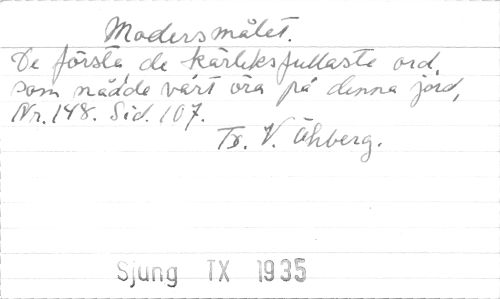 Modersmålet.
De första, de kärleksfullaste ord,
som nådde vårt öra på denna jord,
Nr. 148. Sid. 107.
Tr. V. Åhberg.
Sjung TX 1935